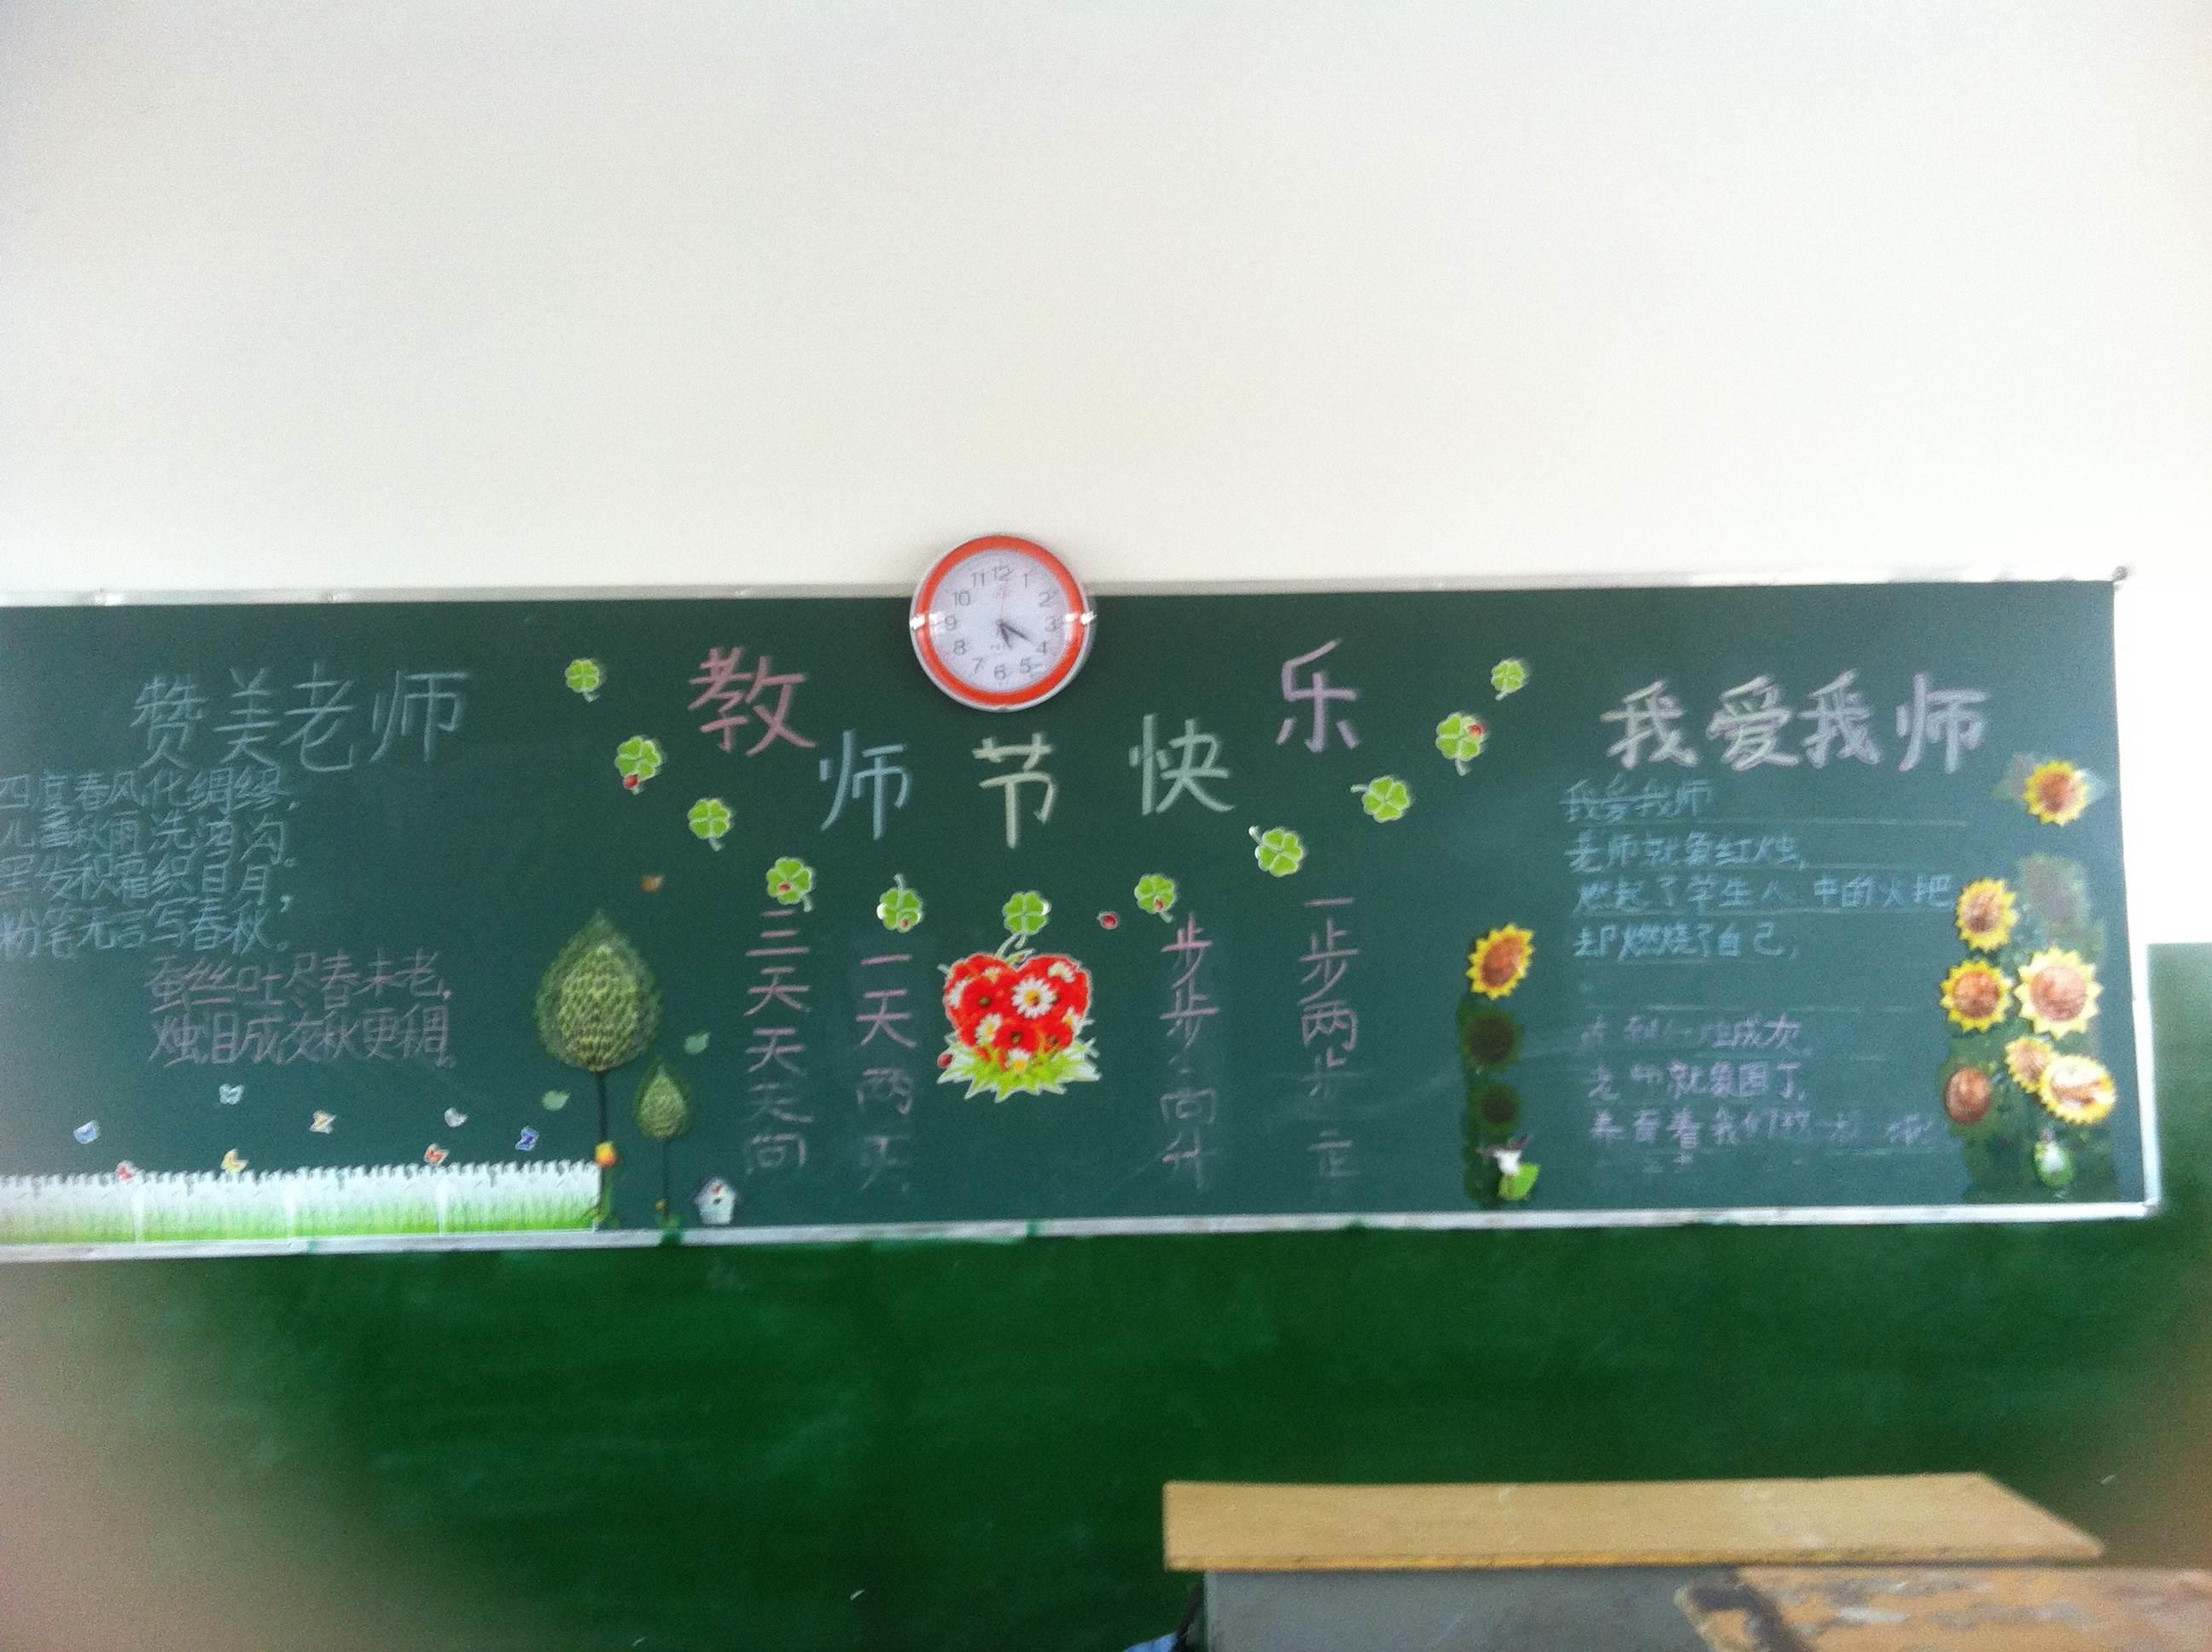 赞美老师
四度春风化绸缪,
几番秋雨洗鸿沟。
黑发积霜织日月,
粉笔无言写春秋。
蚕丝吐尽春未老,
烛泪成灰秋更稠。
教师节快乐
12
1
2
3
4
5
6
7
8
9
10
11
三天天天向
一天两天
步步向升
一步两步
我爱我师
我爱我师
老师就象红烛,
燃起了学生心中的火把
却燃烧了自己,
成灰
老师就象园丁,
养育着我们